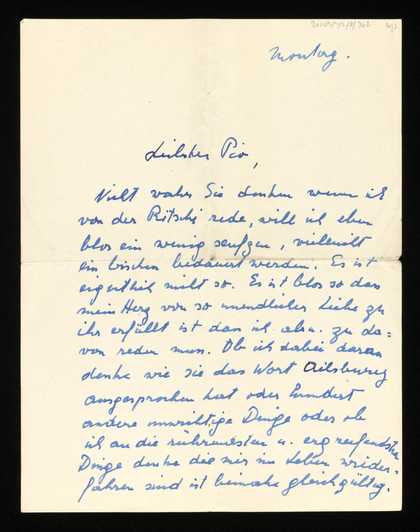 Montag.
Liebster Pio,
Nicht wahr Sie denken wenn ich
von der Ritschi rede, will ich eben
blos ein wenig seufzen, vielleicht
ein bischen bedauert werden. Es ist
eigentlich nicht so. Es ist blos so dass
mein Herz von so unendlicher Liebe zu
ihr erfüllt ist dass ich eben zu da=
von reden muss. Ob ich dabei daran
denke wie sie das Wort Ailsbury
ausgesprochen hat oder hundert
andere unwichtige Dinge oder ob
ich an die rührendsten u. ergreifendsten
Dinge denke die mir im Leben wieder=
fahren sind ist beinahe gleichgültig.